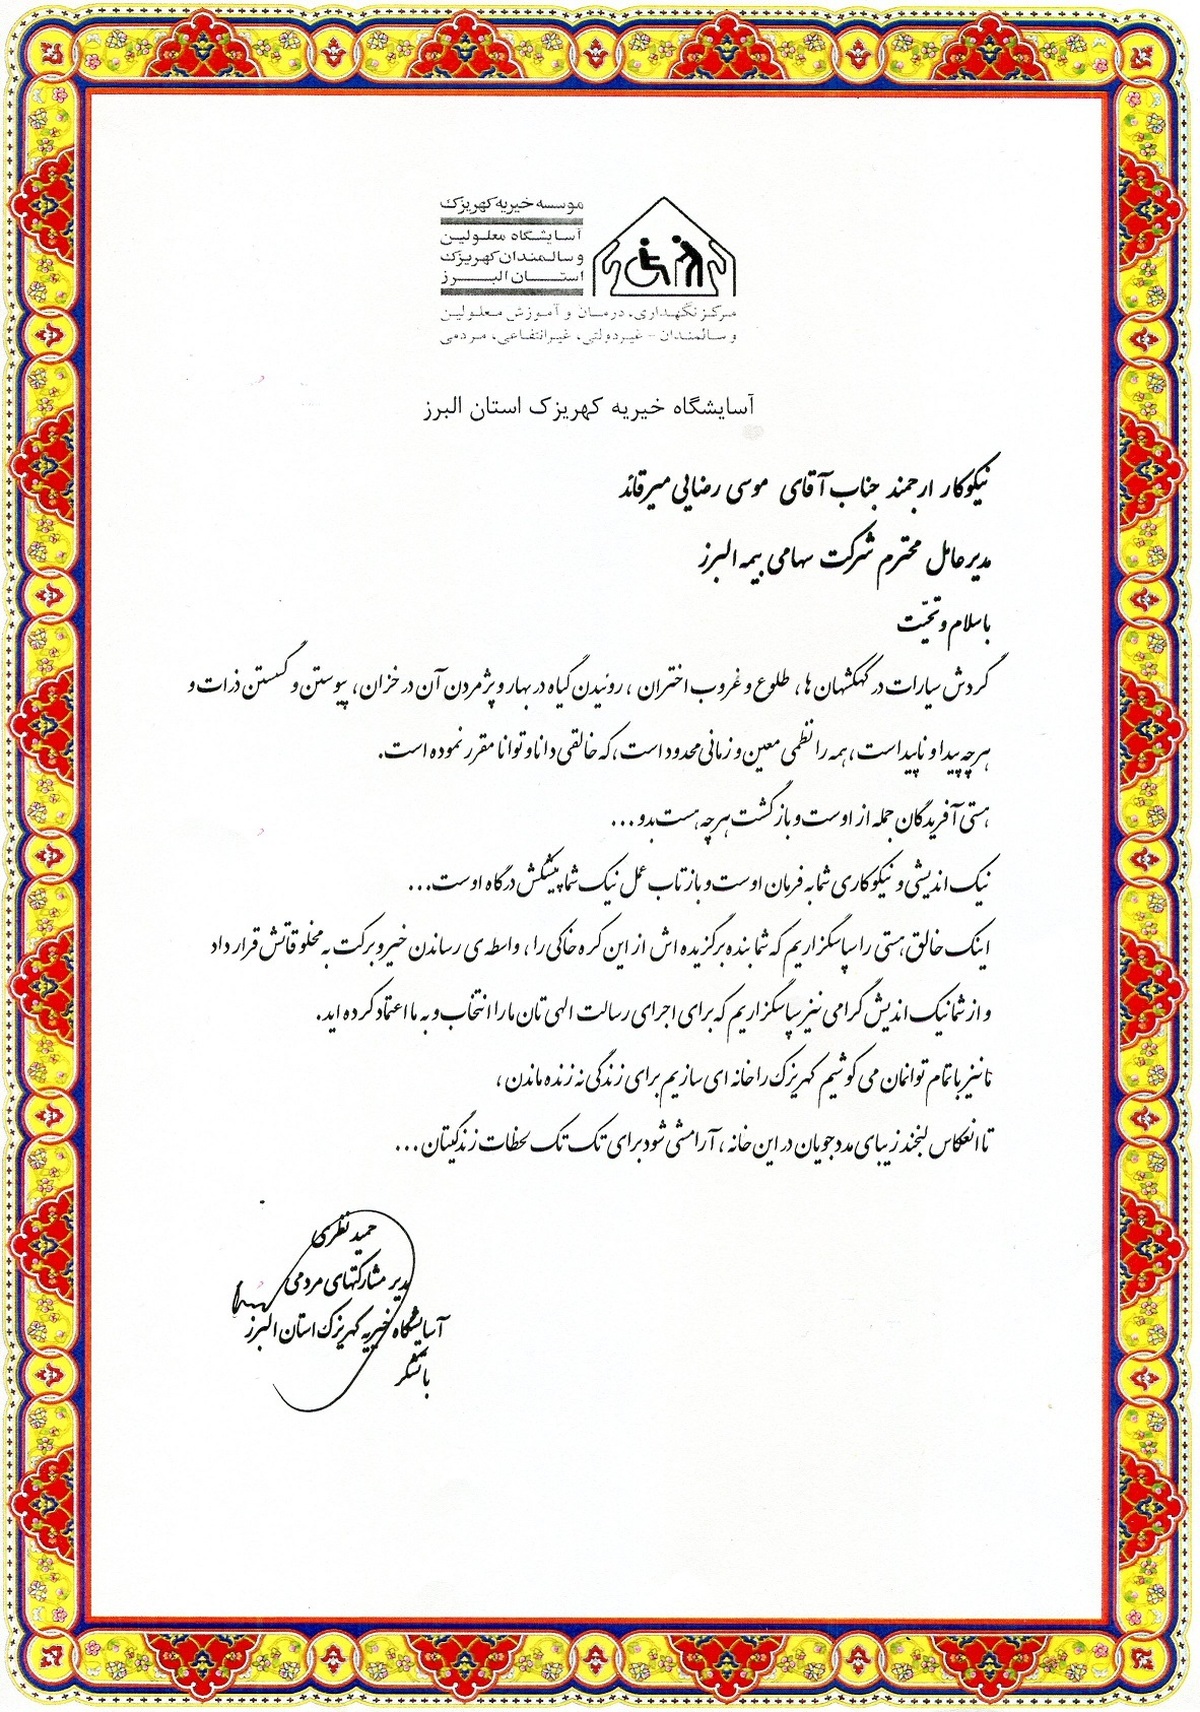 موسسه خیریه کهریزک
آسایشگاه معلولین
و سالمندان کهریزک
استان البرز
مرکز نگهداری، درمان و آموزش معلولین
و سالمندان - غیردولتی، غیرانتفاعی، مردمی
آسایشگاه خیریه کهریزک استان البرز
نیکوکار ارجمند جناب آقای موسی رضایی میرقائد
مدیرعامل محترم شرکت سهامی بیمه البرز
با سلام و تحیّت
گردش سیارات در کهکشهان ها، طلوع و غروب اختران ، روئیدن گیاه در بهار و پژمردن آن در خزان، پیوستن و گسستن ذرات و
هرچه پیدا و ناپیداست ،همه را نظمی معین و زمانی محدود است ،که خالقی دانا و توانا مقرر نموده است.
هستی آفریدگان جمله از اوست و بازگشت هرچه هست بدو...
نیک اندیشی و نیکوکاری شما به فرمان اوست و بازتاب عمل نیک شما پیشکش درگاه اوست...
اینک خالق هستی را سپاسگزاریم که شما بنده برگزیده اش از این کره خاکی را، واسطه ی رساندن خیر و برکت به مخلوقاتش قرار داد
و از شما نیک اندیش گرامی نیز سپاسگزاریم که برای اجرای رسالت الهی تان ما را انتخاب و به ما اعتماد کرده اید.
ما نیز با تمام توانمان می کوشیم کهریزک را خانه ای سازیم برای زندگی نه زنده ماندن ،
تا انعکاس لبخند زیبای مددجویان در این خانه ، آرامشی شود برای تک تک لحظات زندگیتان...
حمید نظری
مدیر مشارکتهای مردمی
آسایشگاه خیریه کهریزک استان البرز
با تشکر